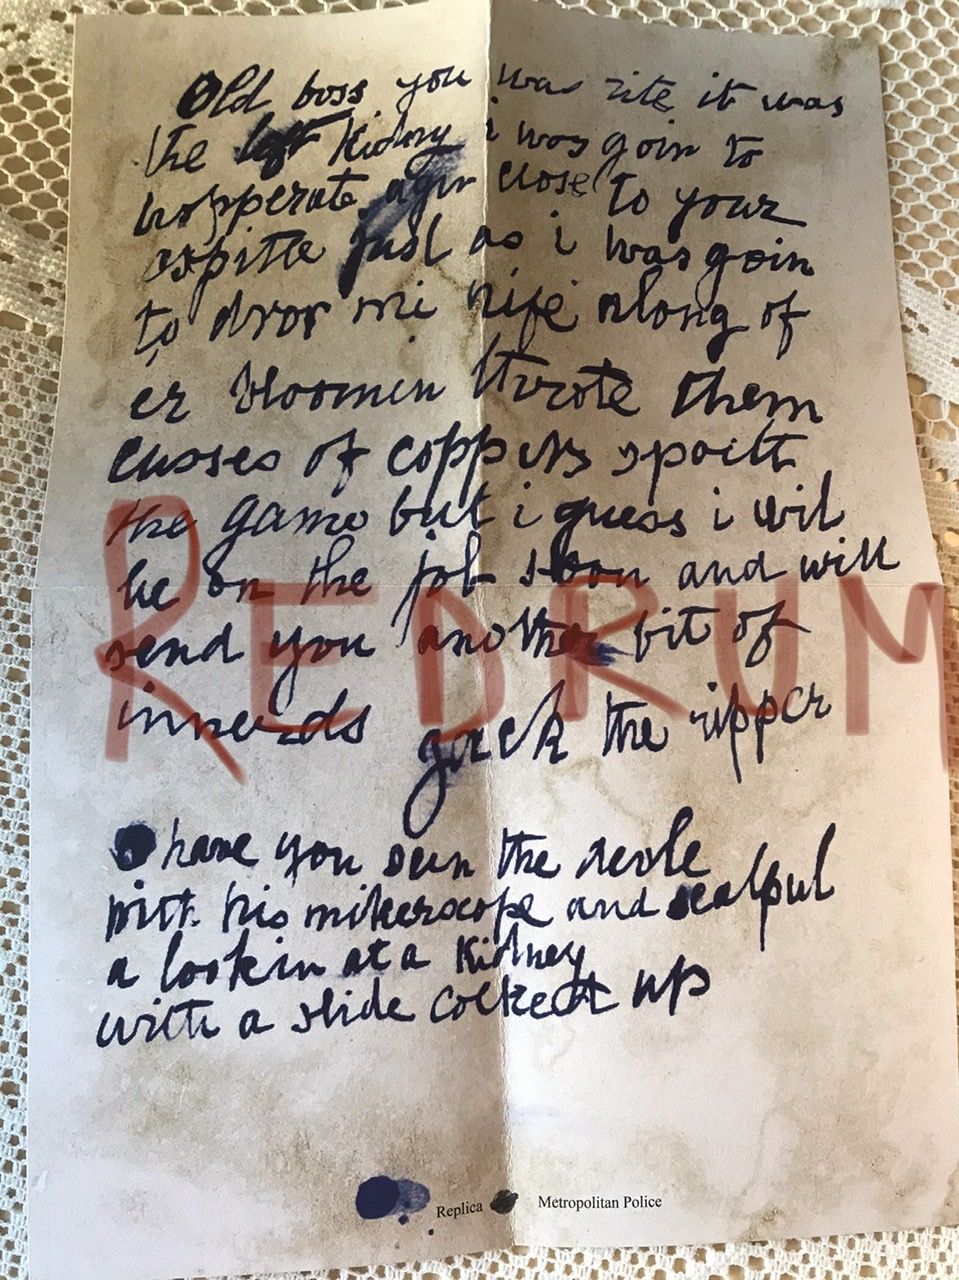 Old boss you was rite it was
the left kidny i was goin to
hopperate agin close to your
ospitle just as i was goin
to dror mi nife along of
er bloomin throte them
cusses of coppers spoilt
the game but i guess i wil
be on the job soon and will
send you another bit of
innerds
Jack the ripper
REDRUM
O have you seen the devle
with his mikerscope and scalpul
a lookin at a Kidney
with a slide cocked up
Replica Metropolitan Police